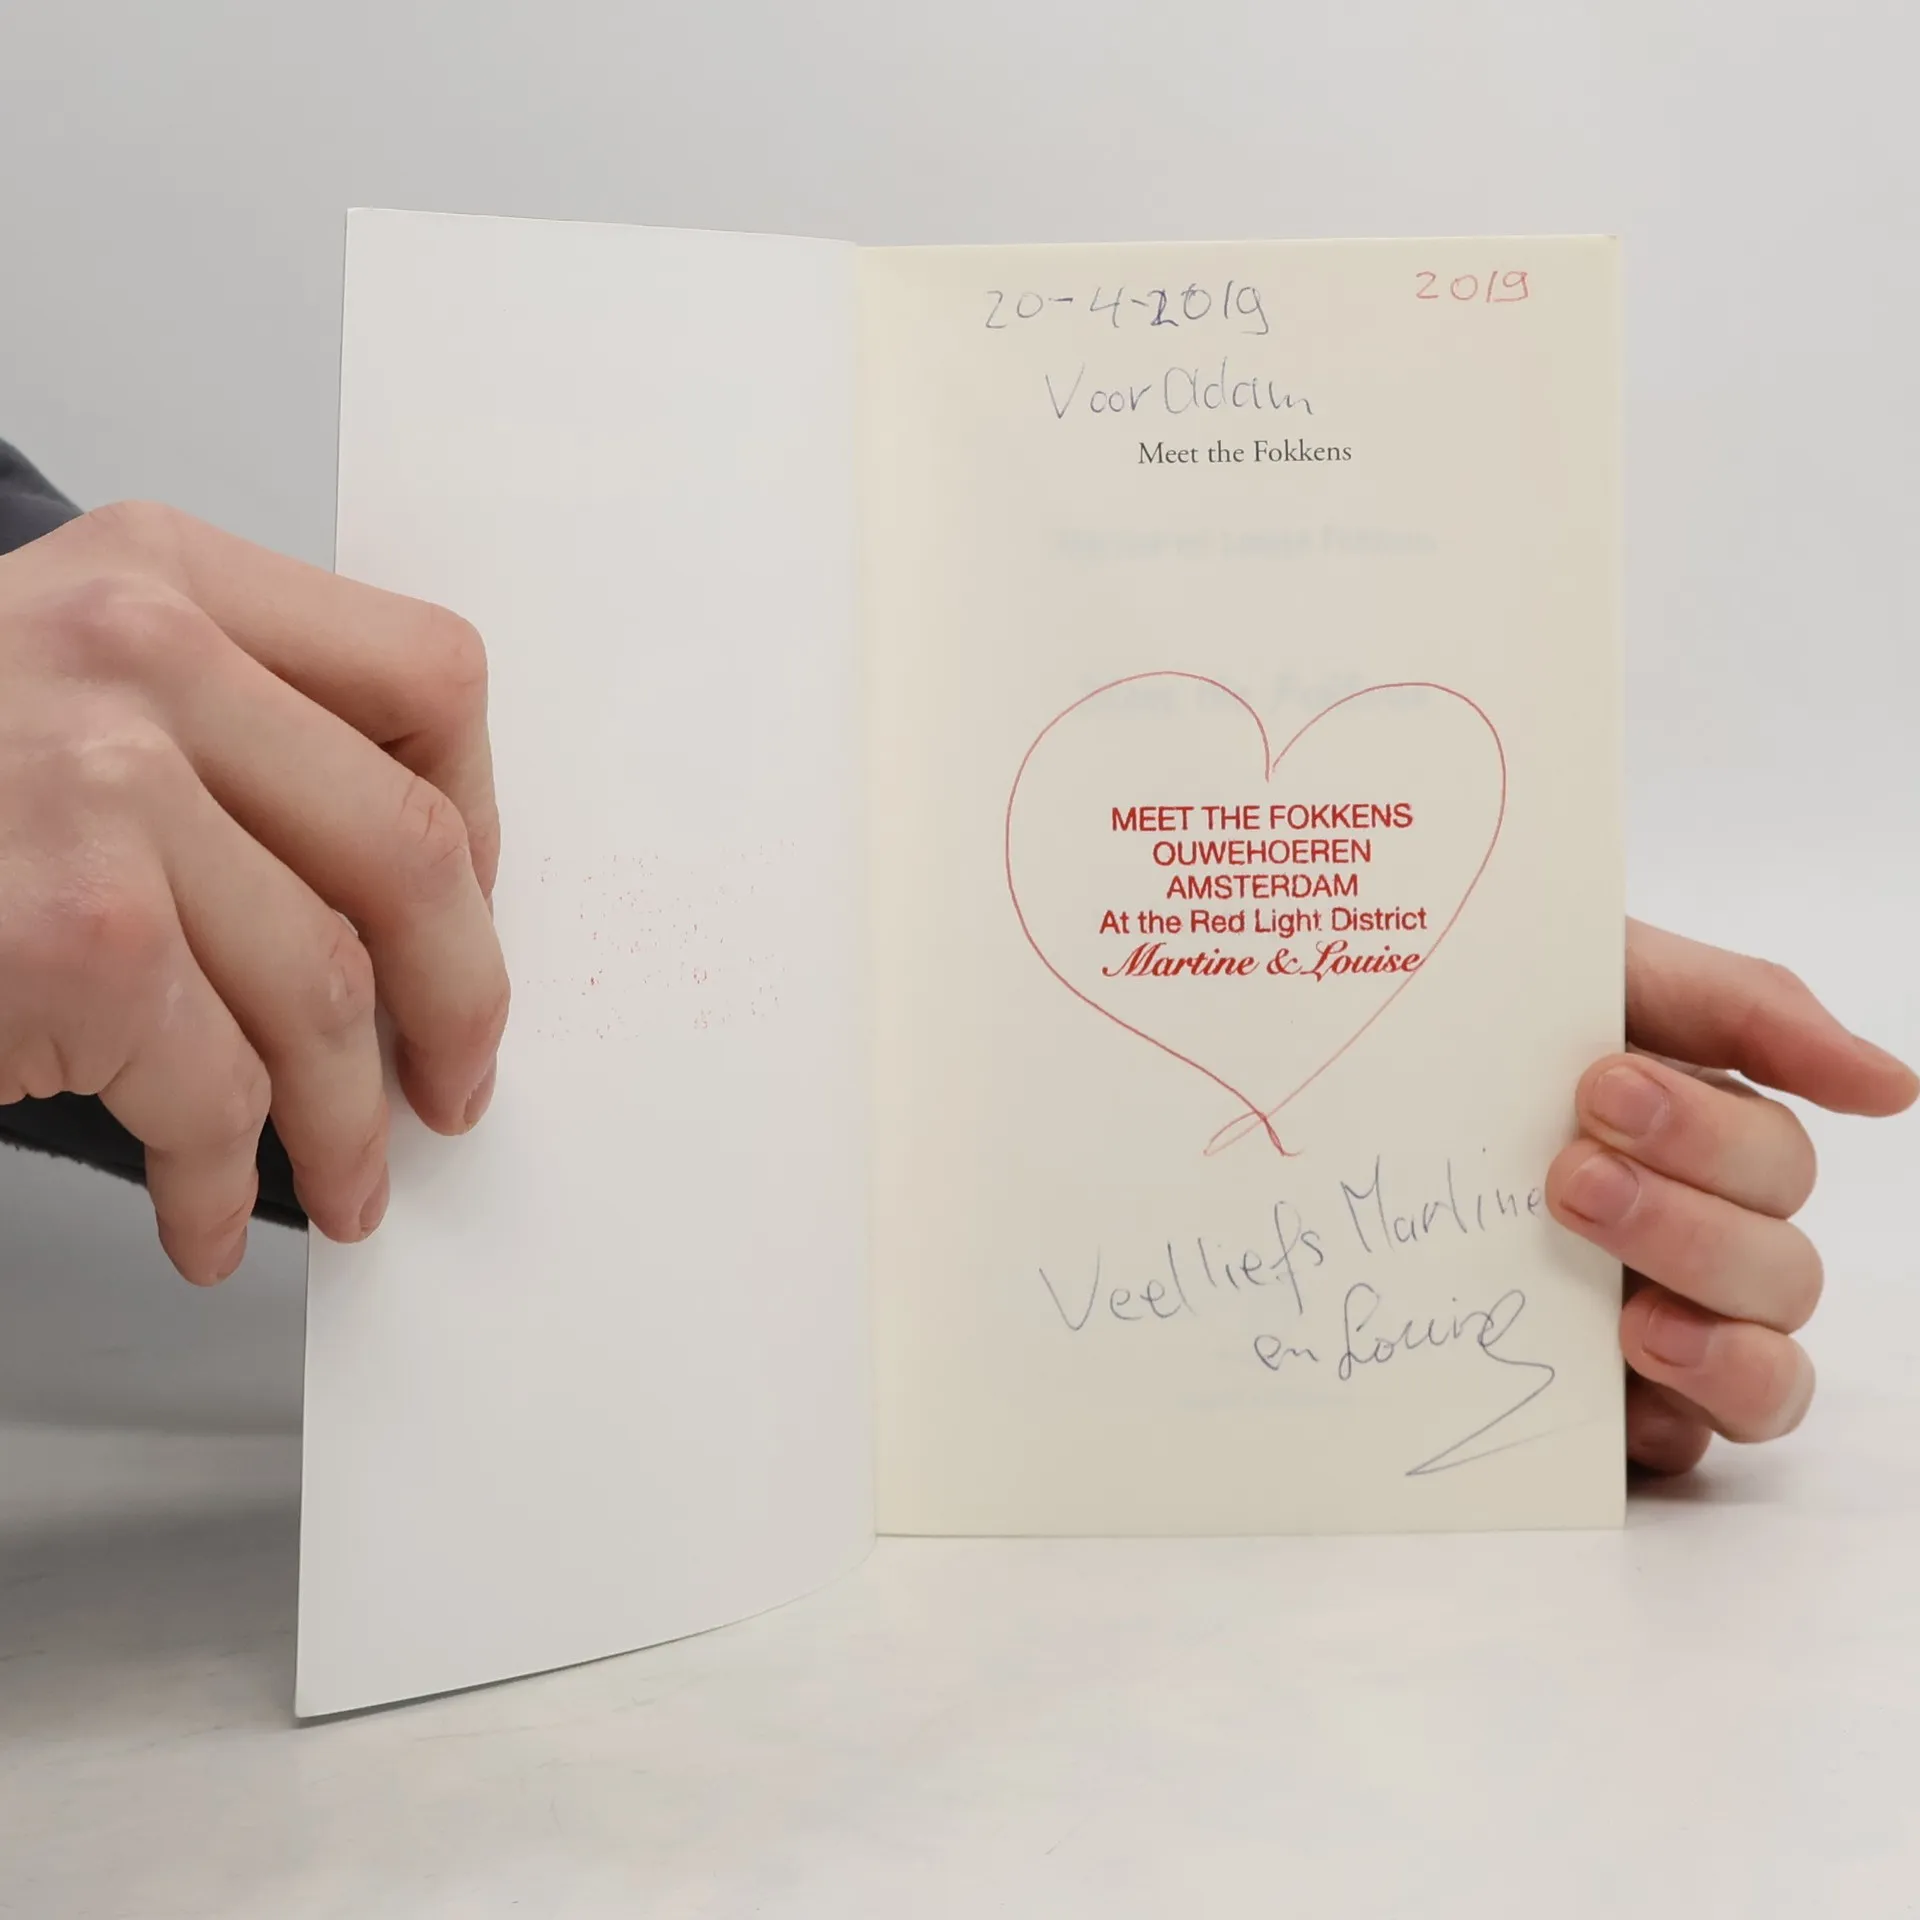 20-4-2019 2019
Voor Adam
Meet the Fokkens
MEET THE FOKKENS
OUWEHOEREN
AMSTERDAM
At the Red Light District
Martine & Louise
Veel liefs Martine
en Louise